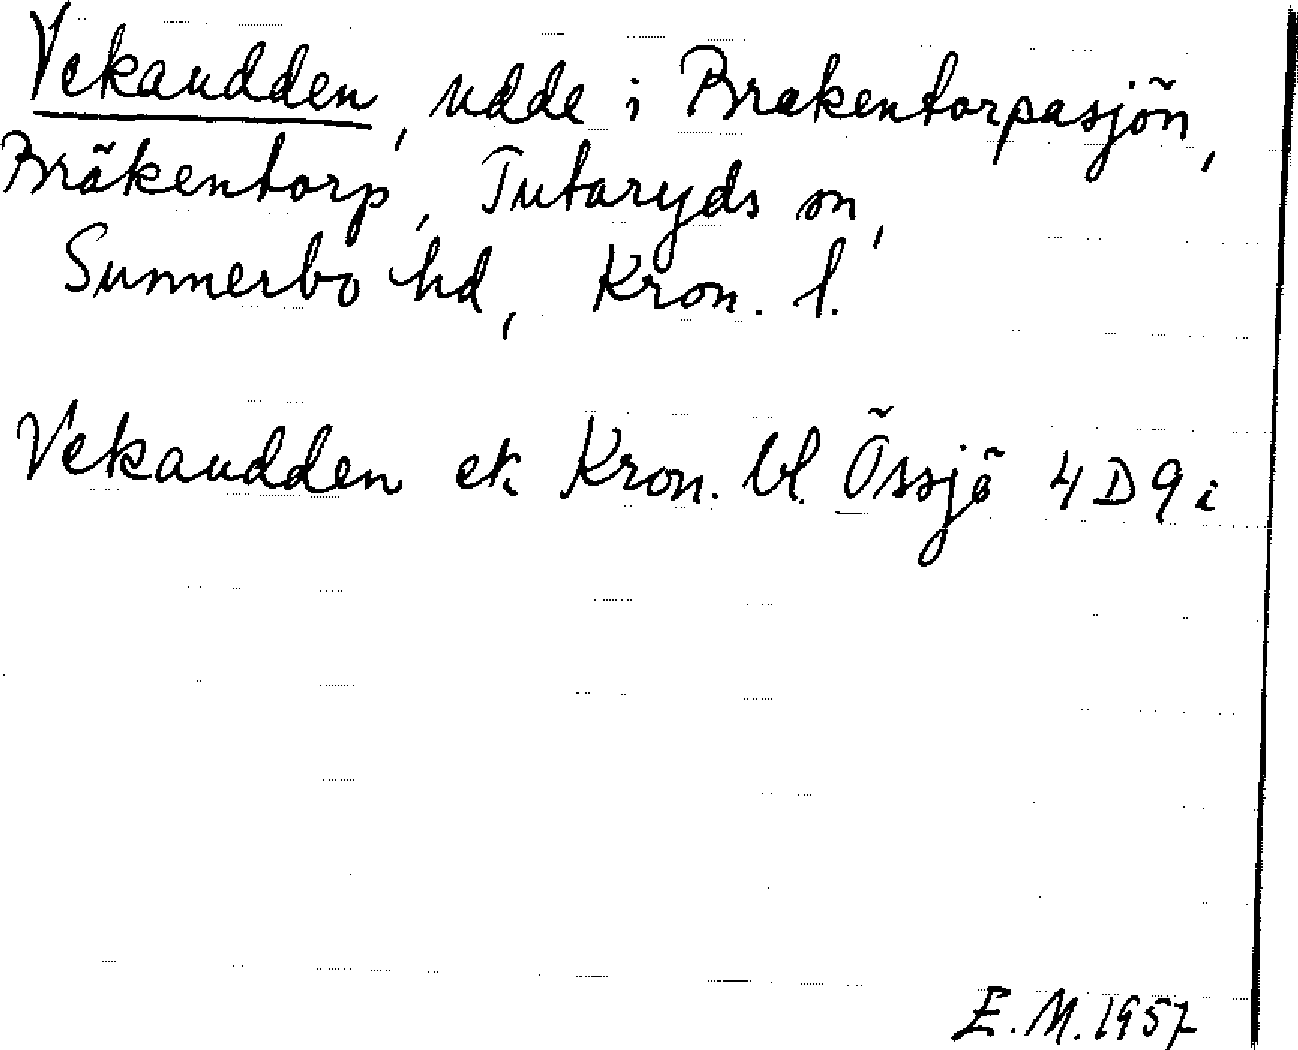 Vekaudden, udde i Brakentorpasjön,
Bräkentorp, Tutaryds sn,
Sunnerbo hd, Kron. l.
Vekaudden ek Kron. bl. Össjö 4D9i
E.M. 1957